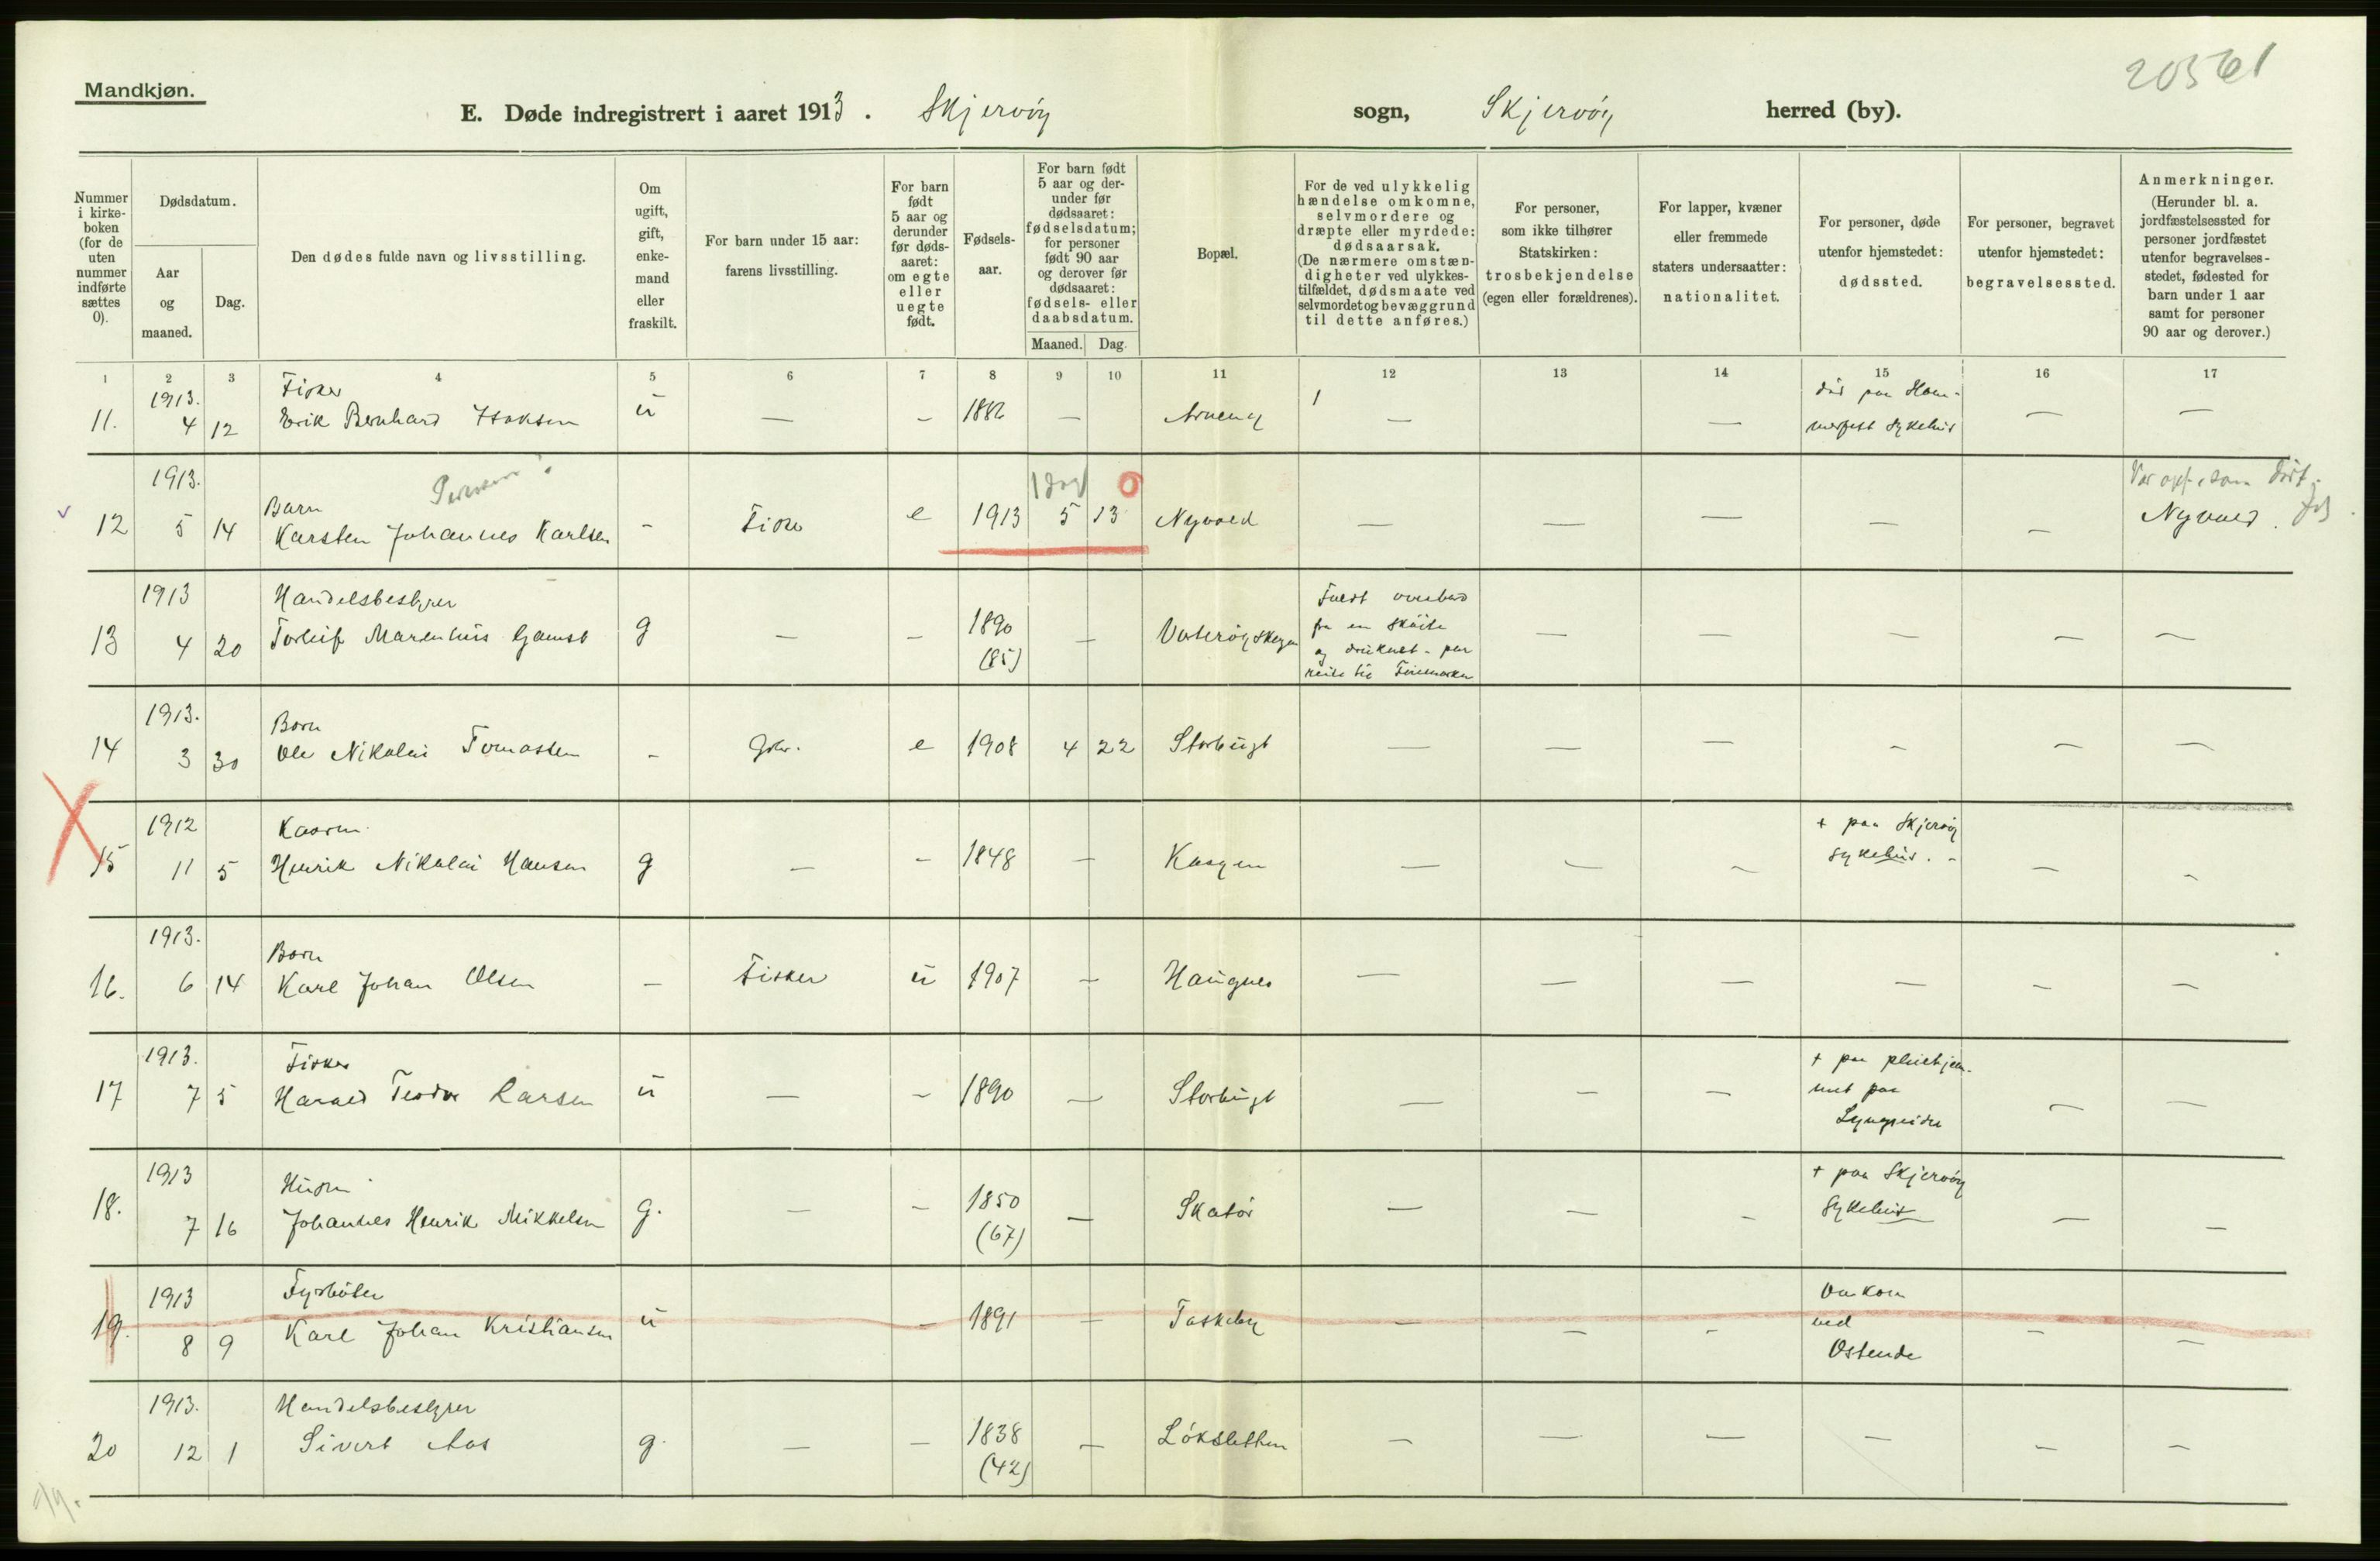 Mandkjøn.
20561
E. Døde indregistrert i aaret 1913. Skjervöy sogn, Skjervöy herred (by).
Nummer i kirkeboken (for de uten nummer indførte sættes 0).
Dødsdatum.
Aar og maaned.
Dag.
Den dødes fulde navn og livsstilling.
Om ugift, gift, enkemand eller fraskilt.
For barn under 15 aar: farens livsstilling.
For barn født 5 aar og derunder før dødsaaret: om egte eller uegte født.
Fødselsaar.
For barn født 5 aar og derunder før dødsaaret: fødselsdatum; for personer født 90 aar og derover før dødsaaret: fødsels- eller daabsdatum.
Maaned. Dag.
Bopæl.
For de ved ulykkelig hændelse omkomne, selvmordere og dræpte eller myrdede: dødsaarsak. (De nærmere omstændigheter ved ulykkestilfældet, dødsmaate ved selvmordet og bevæggrund til dette anføres.)
For personer, som ikke tilhører Statskirken: trosbekjendelse (egen eller forældrenes).
For lapper, kvæner eller fremmede staters undersaatter: nationalitet.
For personer, døde utenfor hjemstedet: dødssted.
For personer, begravet utenfor hjemstedet: begravelsessted.
Anmerkninger. (Herunder bl. a. jordfæstelsessted for personer jordfæstet utenfor begravelsesstedet, fødested for barn under 1 aar samt for personer 90 aar og derover.)
1 2 3 4 5 6 7 8 9 10 11 12 13 14 15 16 17
1913. Fisker död paa Ham-
11. 4 12 Erik Bernhard Isaksen u — - 1882 — Arnöy — — merfest Sykehus — —
1913. 1 dag 0
Barn
12 5 14 Karsten Johannes Karlsen - Fisker e 1913 5 13 Nyvold — — — — — Nyvold.
1913 Handelsbestyrer Faldt overbord
13 4 20 Torleif Marenius Gamst g — - 1890 — Vorteröyskagen fra en sköite — — — — —
(85) og druknet - paa
reise til Finmarken
1913. Barn
14 3 30 Ole Nikolai Tomassen - Gbr. e 1908 4 22 Storbugt — — — - — —
1912 Kaarm. + paa Skjervöy
15 11 5 Henrik Nikolai Hansen g — - 1848 — Kaagen — — — Sykehus. - — -
1913. Barn
16. 6 14 Karl Johan Olsen — Fisker u 1907 — Haugnes — — — — — —
1913. Fisker + paa pleiehjem-
17 7 5 Harald Teodor Larsen u — - 1890 — Storbugt — — — met paa — —
Lyngseidet
1913 Husm. + paa Skjervöy
18. 7 16 Johannes Henrik Mikkelsen g. — - 1850 — Skatör — — - Sykehus — —
(67)
1913 Fyrböter Omkom
19. 8 9 Karl Johan Kristiansen u - 1891 — Taskeby — — - ved — —
Ostende
1913. Handelsbestyrer
20 12 1 Sivert Aas g. — — 1838 — Löksletten — — — — — —
(42)